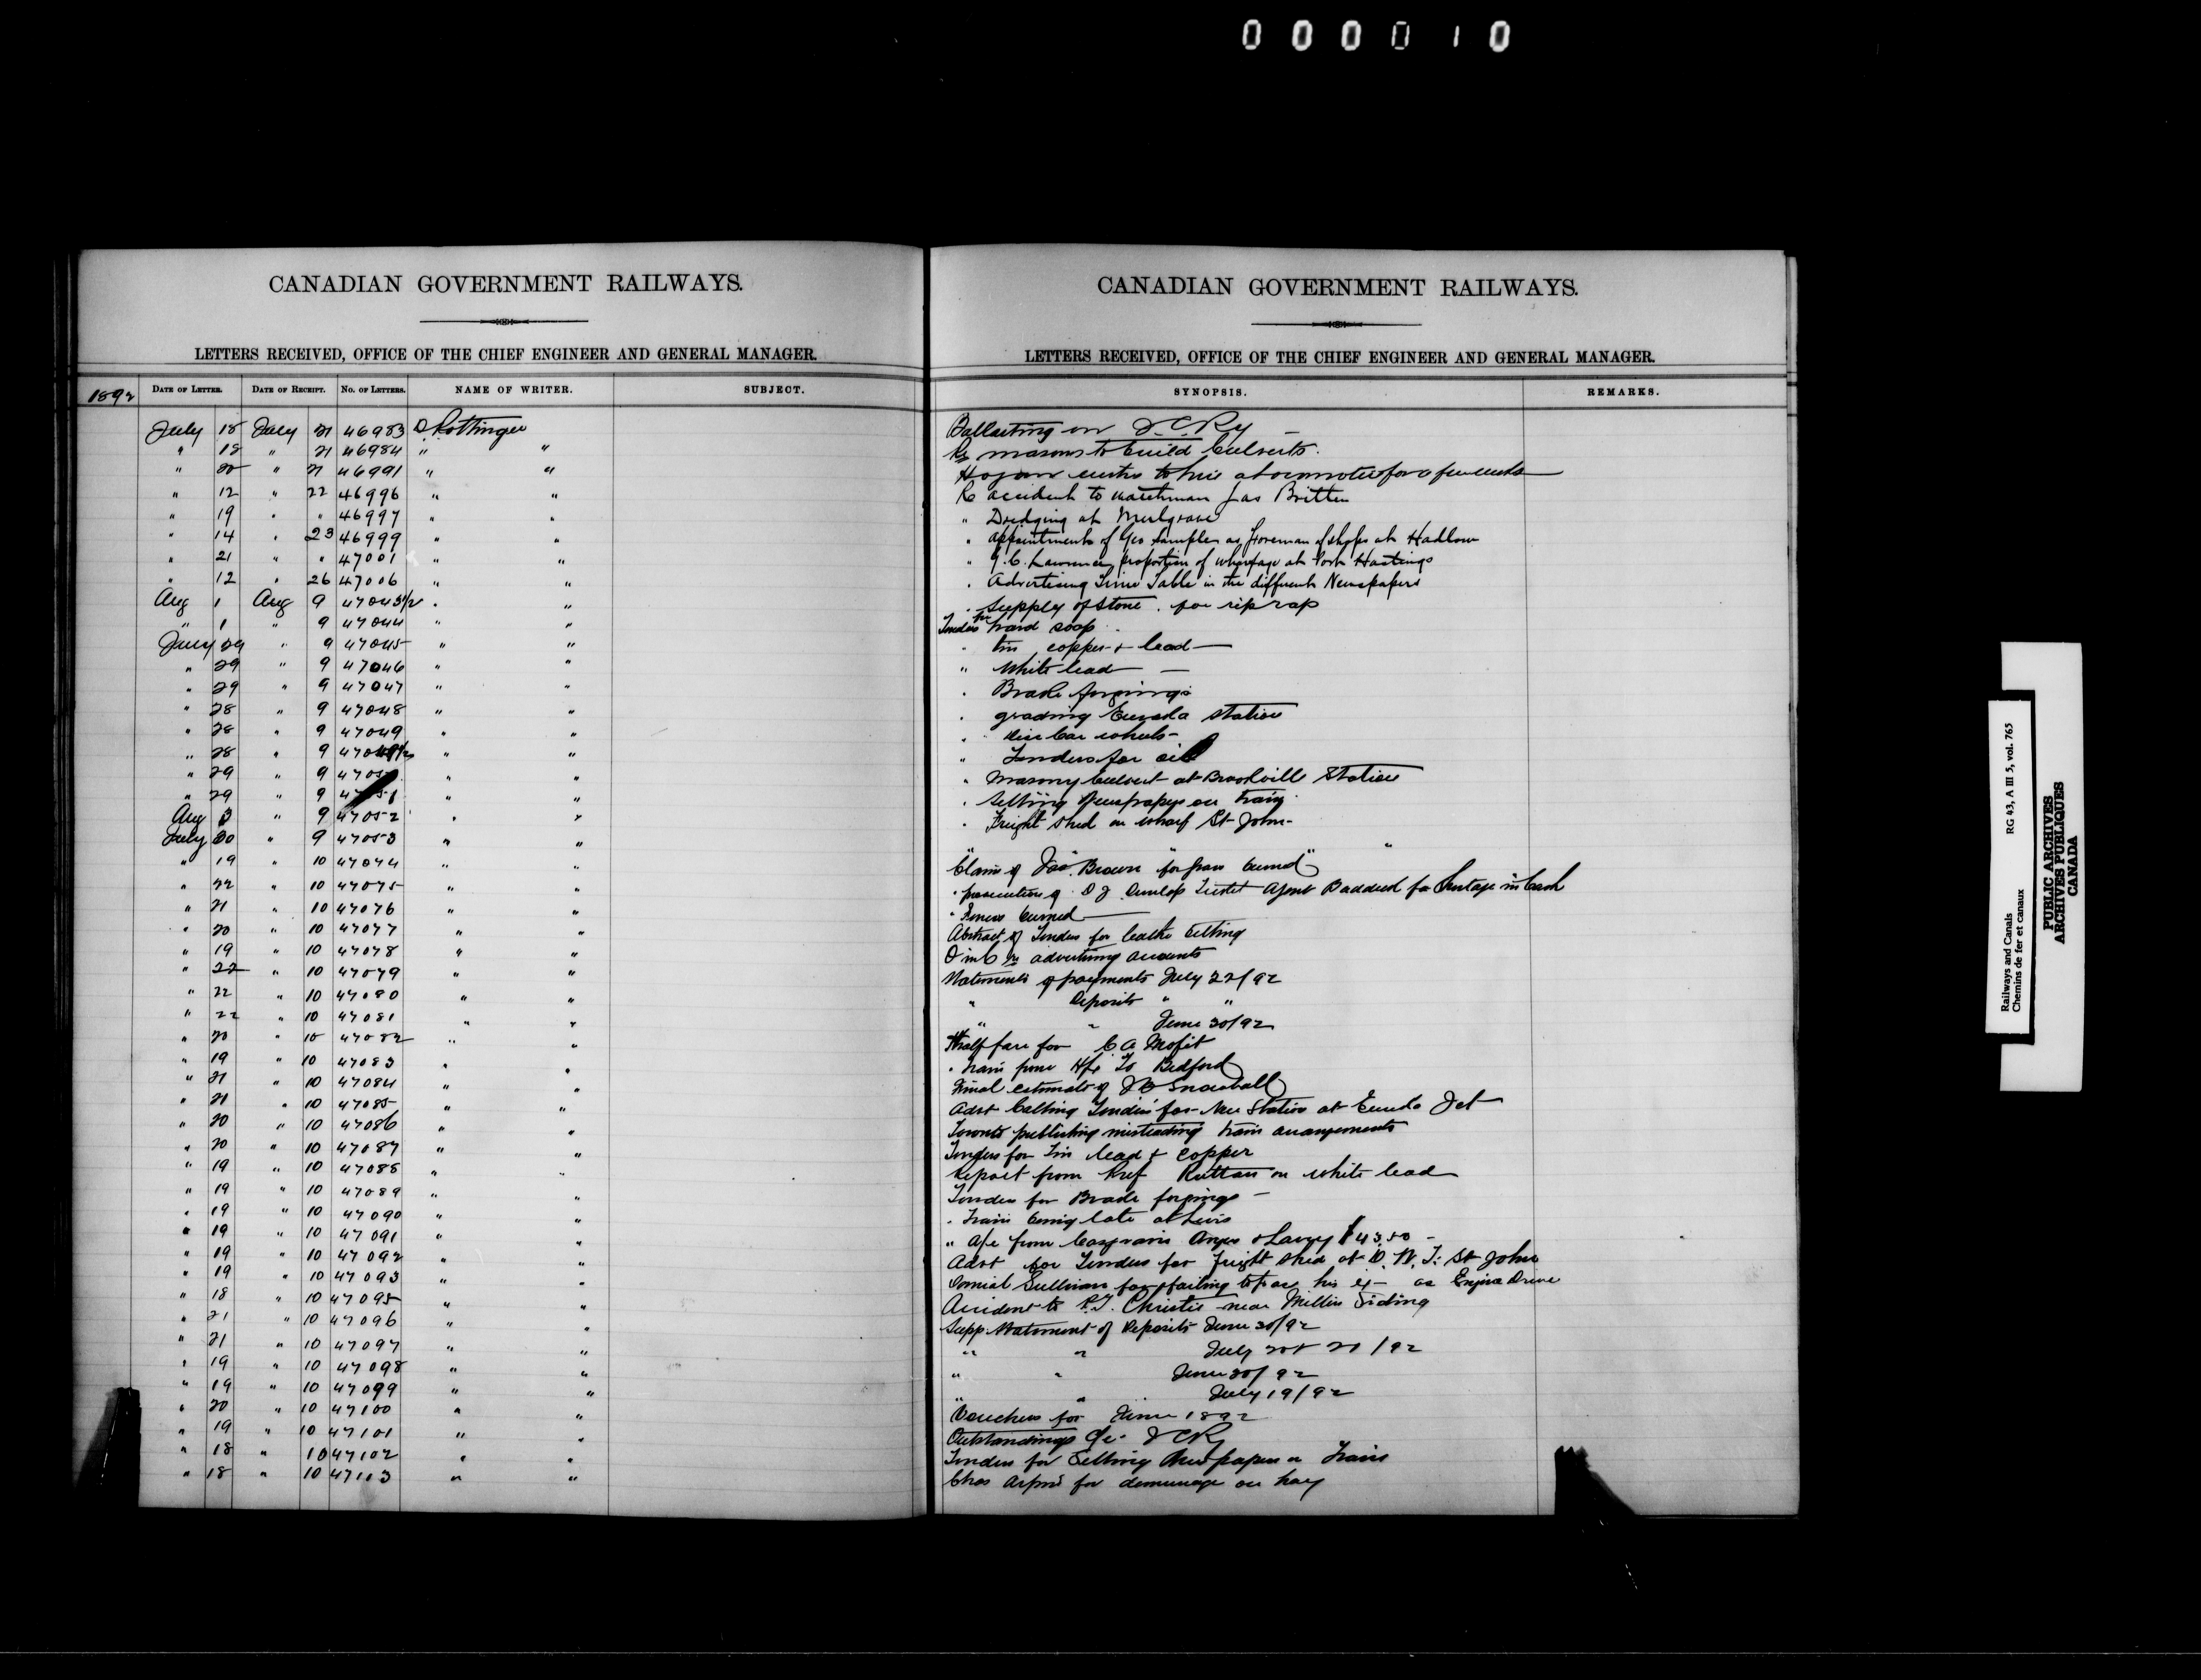 000010
CANADIAN GOVERNMENT RAILWAYS.
LETTERS RECEIVED, OFFICE OF THE CHIEF ENGINEER AND GENERAL MANAGER.
1892 DATE OF LETTER. DATE OF RECEIPT. No. OF LETTERS. NAME OF WRITER. SUBJECT.
July 18 July 21 46983 D. Pottinger
" 18 " 21 46984 " "
" 20 " 21 46991 " "
" 12 " 22 46996 " "
" 19 " " 46997 " "
" 14 " 23 46999 " "
" 21 " " 47001 " "
" 12 " 26 47006 " "
Aug 1 Aug 9 47043 1/2 " "
" 1 " 9 47044 " "
July 29 " 9 47045 " "
" 29 " 9 47046 " "
" 29 " 9 47047 " "
" 28 " 9 47048 " "
" 28 " 9 47049 " "
" 28 " 9 47049 1/2 " "
" 29 " 9 " "
" 29 " 9 47051 " "
Aug 3 " 9 47052 " "
July 30 " 9 47053 " "
" 19 " 10 47074 " "
" 22 " 10 47075 " "
" 21 " 10 47076 " "
" 20 " 10 47077 " "
" 19 " 10 47078 " "
" 22 " 10 47079 " "
" 22 " 10 47080 " "
" 22 " 10 47081 " "
" 20 " 10 47082 " "
" 19 " 10 47083 " "
" 21 " 10 47084 " "
" 21 " 10 47085 " "
" 20 " 10 47086 " "
" 20 " 10 47087 " "
" 19 " 10 47088 " "
" 19 " 10 47089 " "
" 19 " 10 47090 " "
" 19 " 10 47091 " "
" 19 " 10 47092 " "
" 19 " 10 47093 " "
" 18 " 10 47095 " "
" 21 " 10 47096 " "
" 21 " 10 47097 " "
" 19 " 10 47098 " "
" 19 " 10 47099 " "
" 20 " 10 47100 " "
" 19 " 10 47101 " "
" 18 " 10 47102 " "
" 18 " 10 47103 " "
CANADIAN GOVERNMENT RAILWAYS.
LETTERS RECEIVED, OFFICE OF THE CHIEF ENGINEER AND GENERAL MANAGER.
SYNOPSIS. REMARKS.
Ballasting on I.C.Ry
Re masons to build Culverts.
Hogan to hire a locomotive for a few weeks
Re accident to watchman Jas Britten
" Dredging at Mulgrave
" appointment of Geo Sample as foreman of shops at Hadlow
" Lawrence, proportion of wharfage at Port Hastings
" Advertising Time Table in the different Newspapers
" Supply of Stone for rip rap
Tenders for hard soap
" tin copper & lead
" White lead
" Brake forgings
" grading Eureka Station
" Car wheels
" Tenders for oil
" Masonry Culvert at Brookville Station
" Selling Newspapers on train
" Freight Shed on wharf St John
"
Claim of Jas. Brown for burned
" of D J Dunlop Agent Baddeck for Shortage in Cash
" Fences burned
Abstract of Tenders for leather belting
O in C re advertising accounts
Statements of payments July 22/92
" Deposits " "
" " June 30/92
Half fare for C A Mofit
" train from Hfx to Bedford
Final estimate of J B Snowball
Advt Calling Tenders for New Station at Eureka Jct
publishing misleading train arrangements
Tenders for Tin lead & copper
Report from Prof Ruttan on white lead
Tenders for Brake forgings
" Train being late at Levis
" a/c from Casgrain Angers & Lavery $43.50
Advt for Tenders for freight shed at D. W. T. St John
Sullivan for failing to pass his ex- as Engine Driver
Accident to P.T. Christie near Millers Siding
Supp Statement of Deposits June 30/92
" " July 20 & 21/92
" " June 30/92
" " July 19/92
Vouchers for June 1892
Outstandings a/c I C Ry
Tenders for Selling Newspapers on Trains
Chas for demurrage on hay
Railways and Canals
Chemins de fer et canaux
RG 43, A III 5, vol. 765
PUBLIC ARCHIVES
ARCHIVES PUBLIQUES
CANADA